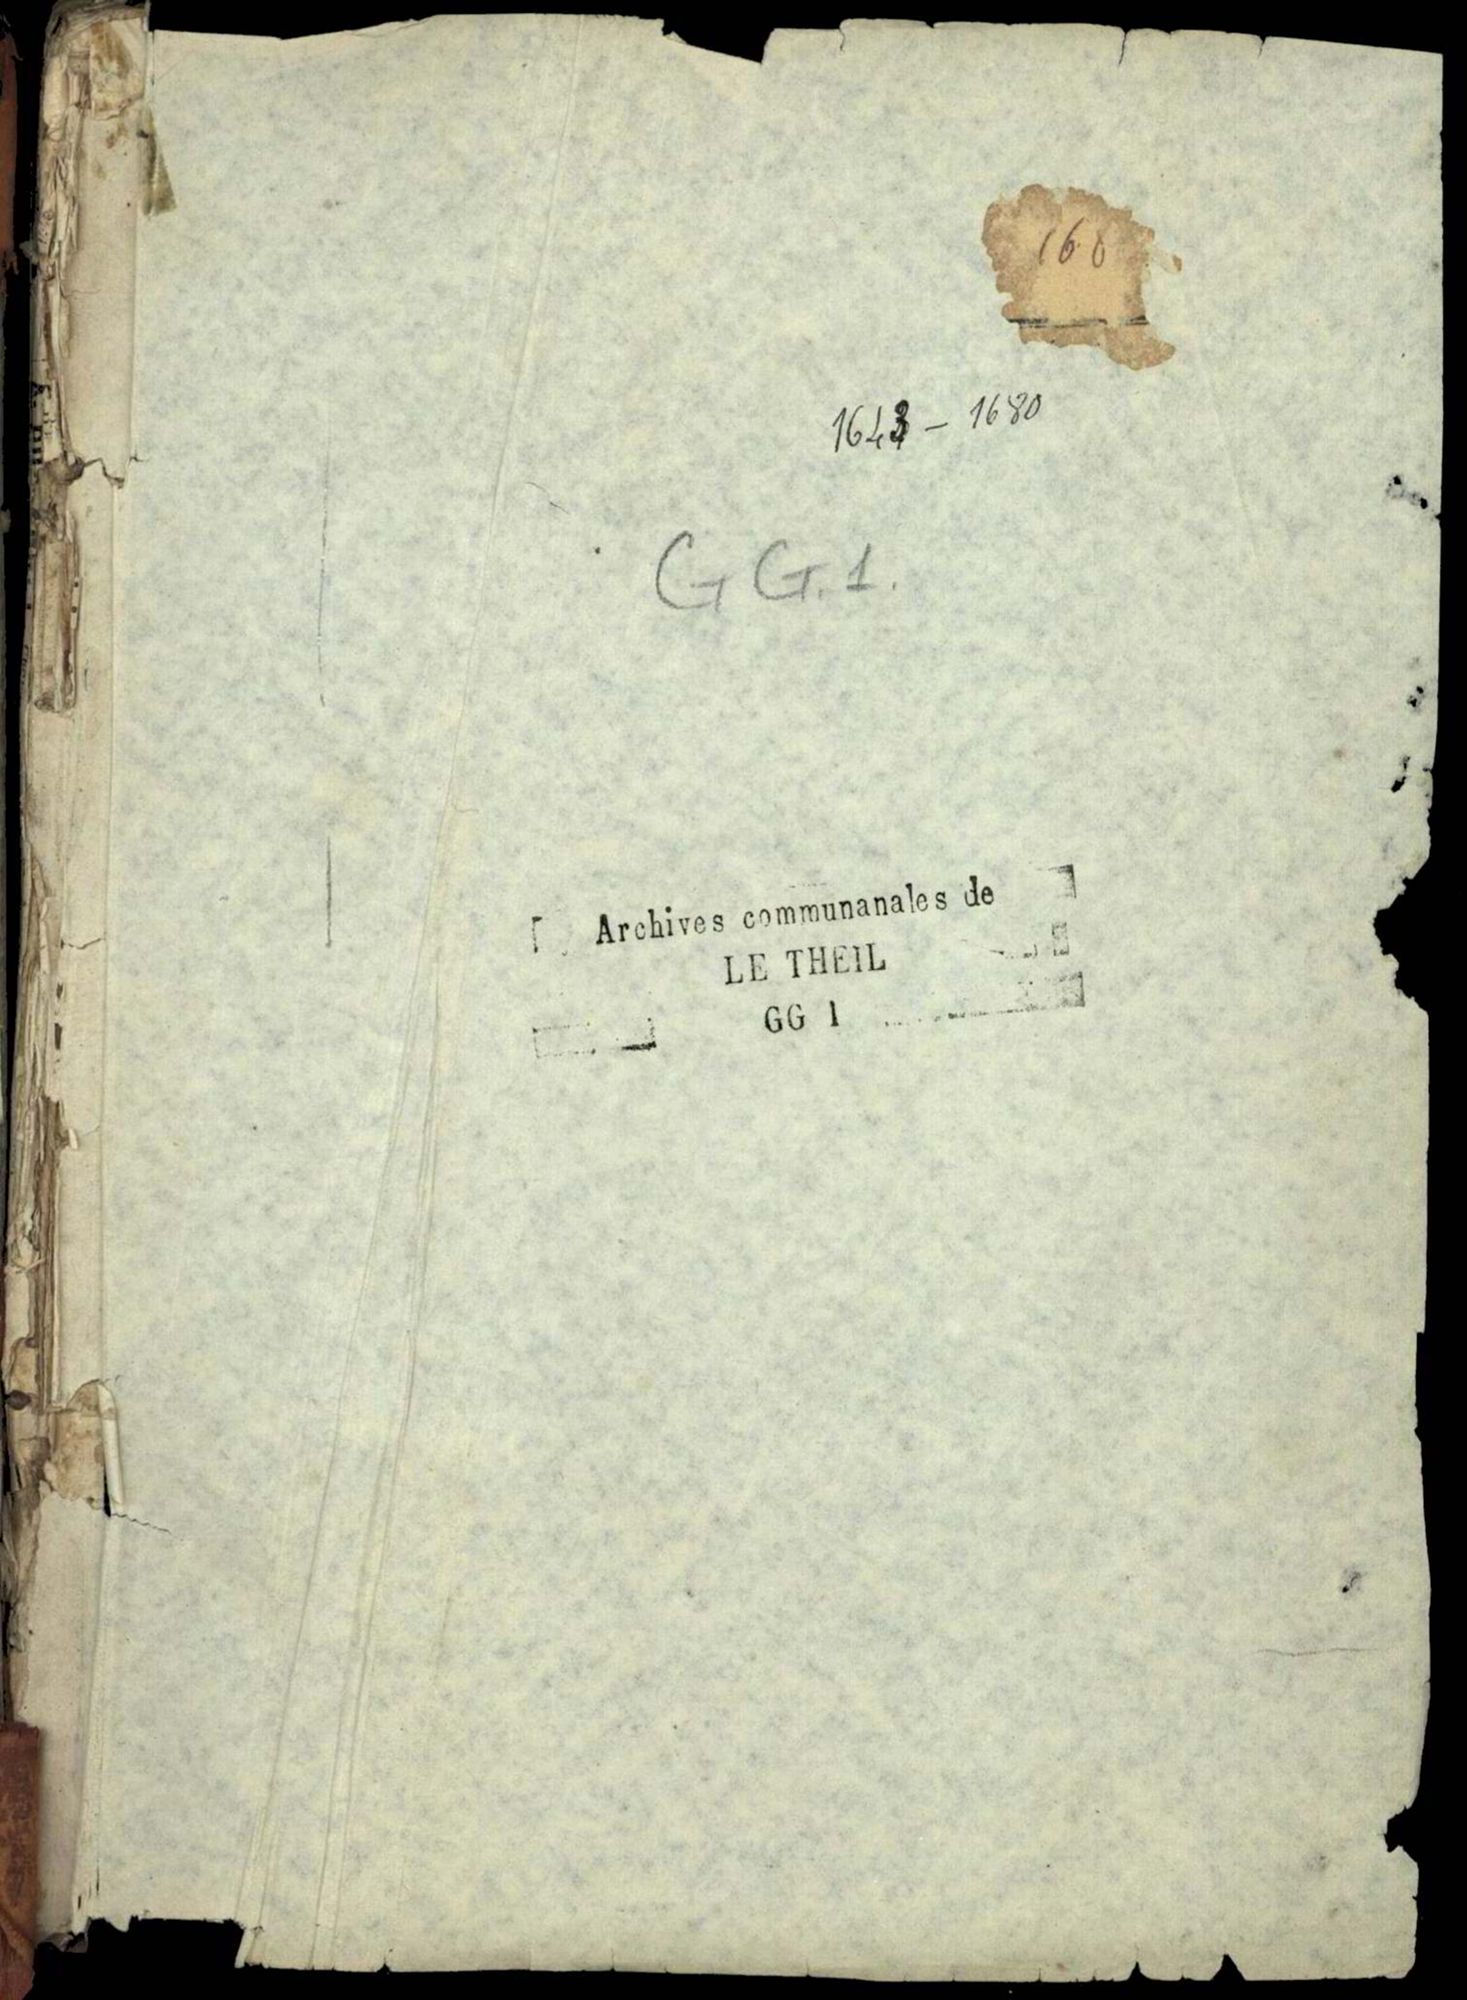 168
1643 - 1680
GG.1.
Archives communanales de
LE THEIL
GG 1